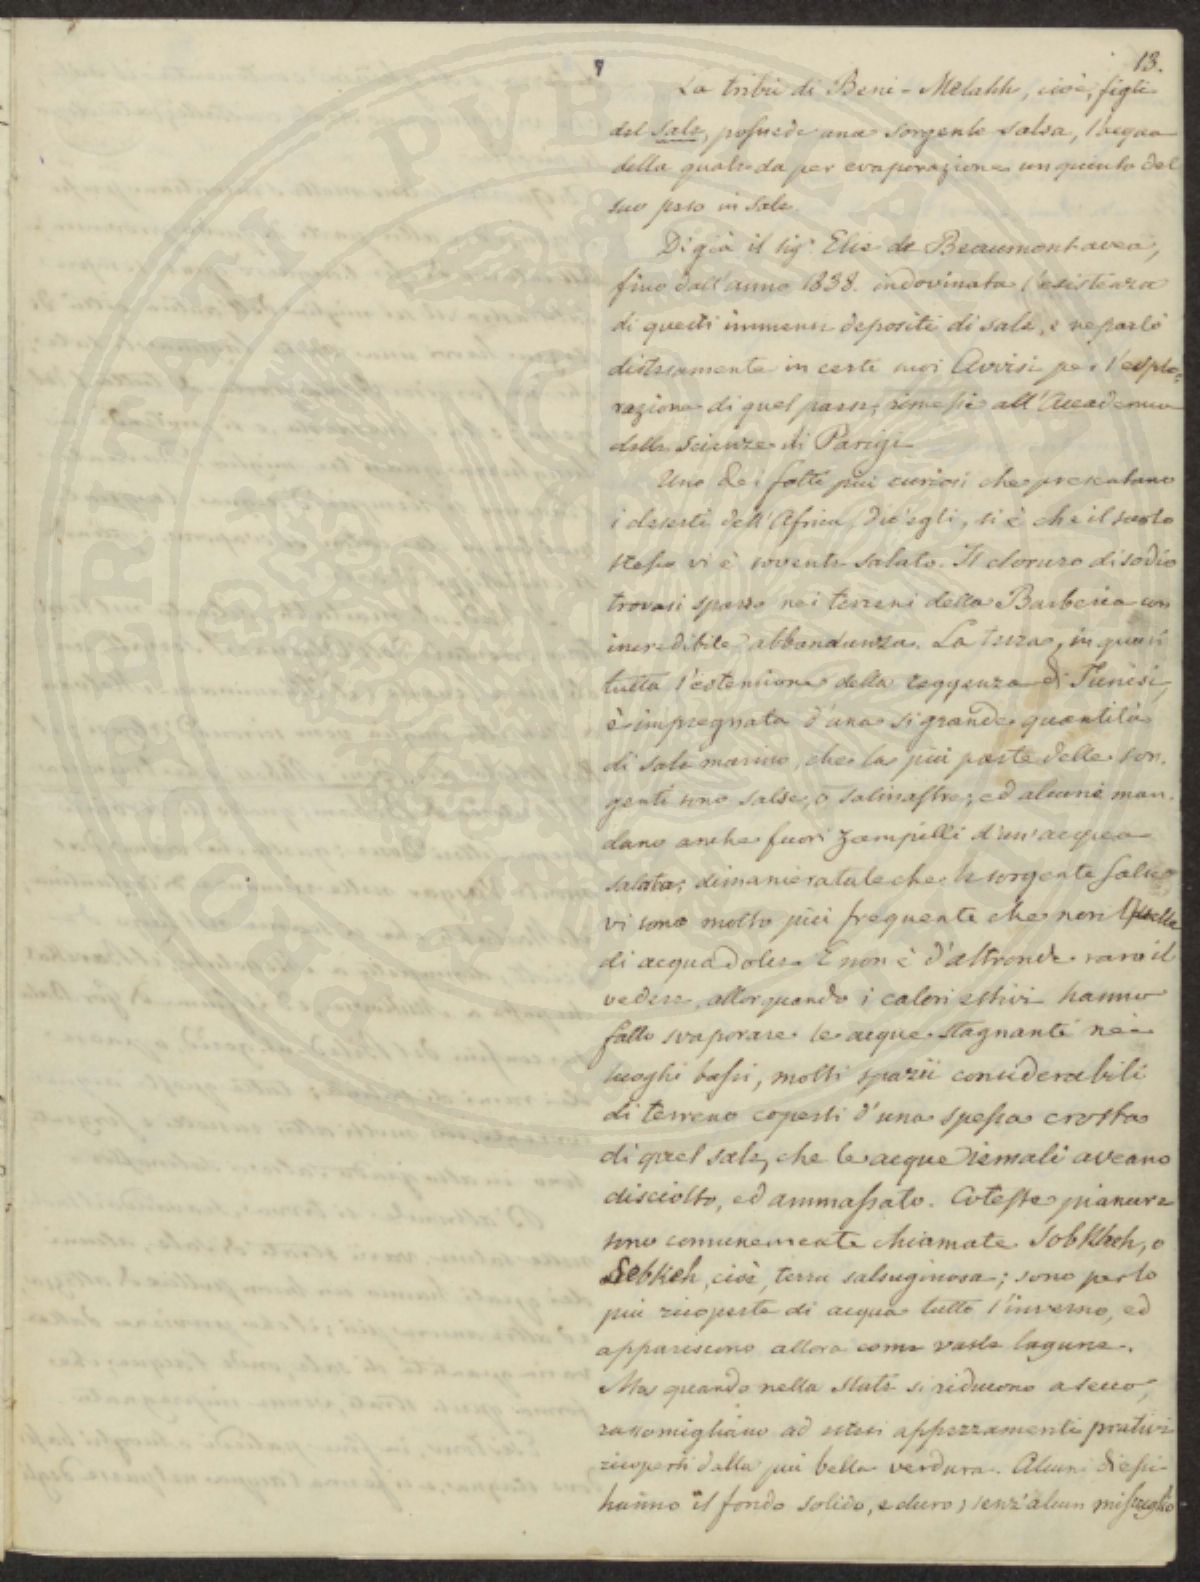 13.
La tribù di Beni-Melahh, cioè, figli
del sale, possiede una sorgente salsa, l'acqua
della quale da per evaporazione un quinto del
suo peso in sale.
Di già il sig.r Elie de Beaumont avea,
fino dall'anno 1838. indovinata l'esistenza
di questi immensi depositi di sale, e ne parlò
distesamente in certi suoi Avvisi per l'esplo-
razione di quel paese, rimessi all'Accademia
delle Scienze di Parigi
Uno dei fatti più curiosi che presentano
i deserti dell'Africa, dic'egli, si è che il suolo
stesso vi è sovente salato. Il cloruro di sodio
trovasi sparso nei terreni della Barberia con
incredibile abbondanza. La terra, in quasi
tutta l'estensione della reggenza di Tunisi,
è impregnata d'una sì grande quantità
di sale marino, che la più parte delle sor-
genti sono salse, o salmastre; ed alcune man-
dano anche fuori zampilli d'un'acqua
salata; dimanieratale che le sorgente salse
vi sono molto più frequente che non quelle
di acqua dolce. E non è d'altronde raro il
vedere, allorquando i calori estivi hanno
fatto svaporare le acque stagnanti nei
luoghi bassi, molti spazii considerabili
di terreno coperti d'una spessa crosta
di quel sale, che le acque iemali aveano
disciolto, ed ammassato. Coteste pianure
sono comunemente chiamate Sobkhah, o
Sebkah, cioè, terra salsuginosa; sono per lo
più ricoperte di acqua tutto l'inverno, ed
appariscono allora come vaste lagune.
Ma quando nella state si riducono a secco,
rassomigliano ad estesi appezzamenti prativi
ricoperti dalla più bella verdura. Alcuni diessi
hanno il fondo solido, e duro, senz'alcun miscuglio